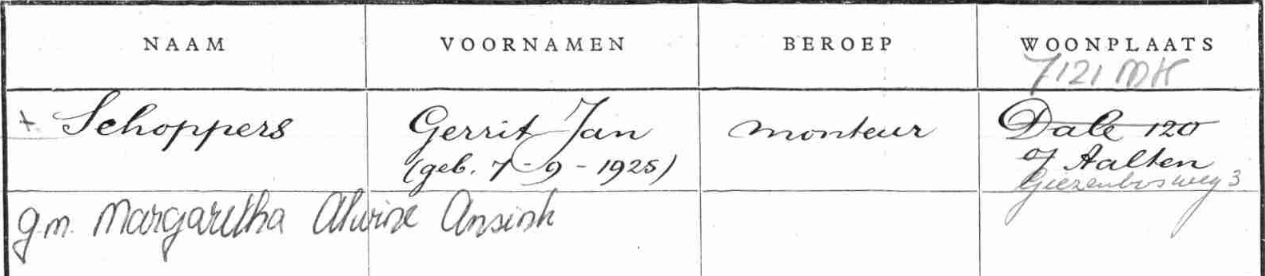 NAAM VOORNAMEN BEROEP WOONPLAATS
7121 MK
+ Schoppers Gerrit Jan monteur Dale 120
(geb. 7-9-1925) Aalten
Giezenbosweg 3
gm. Margaretha Ansink